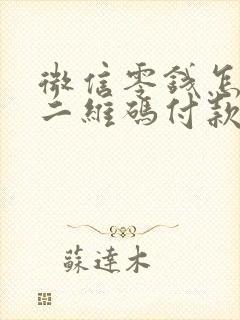 微信零钱怎
二維碼付款
蘇達木